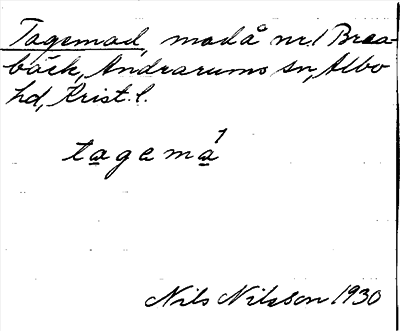 Tagemad, madå nr. 1 Brea-
bäck, Andrarums sn, Albo
hd, Krist. l.
tagemà
Nils Nilsson 1930